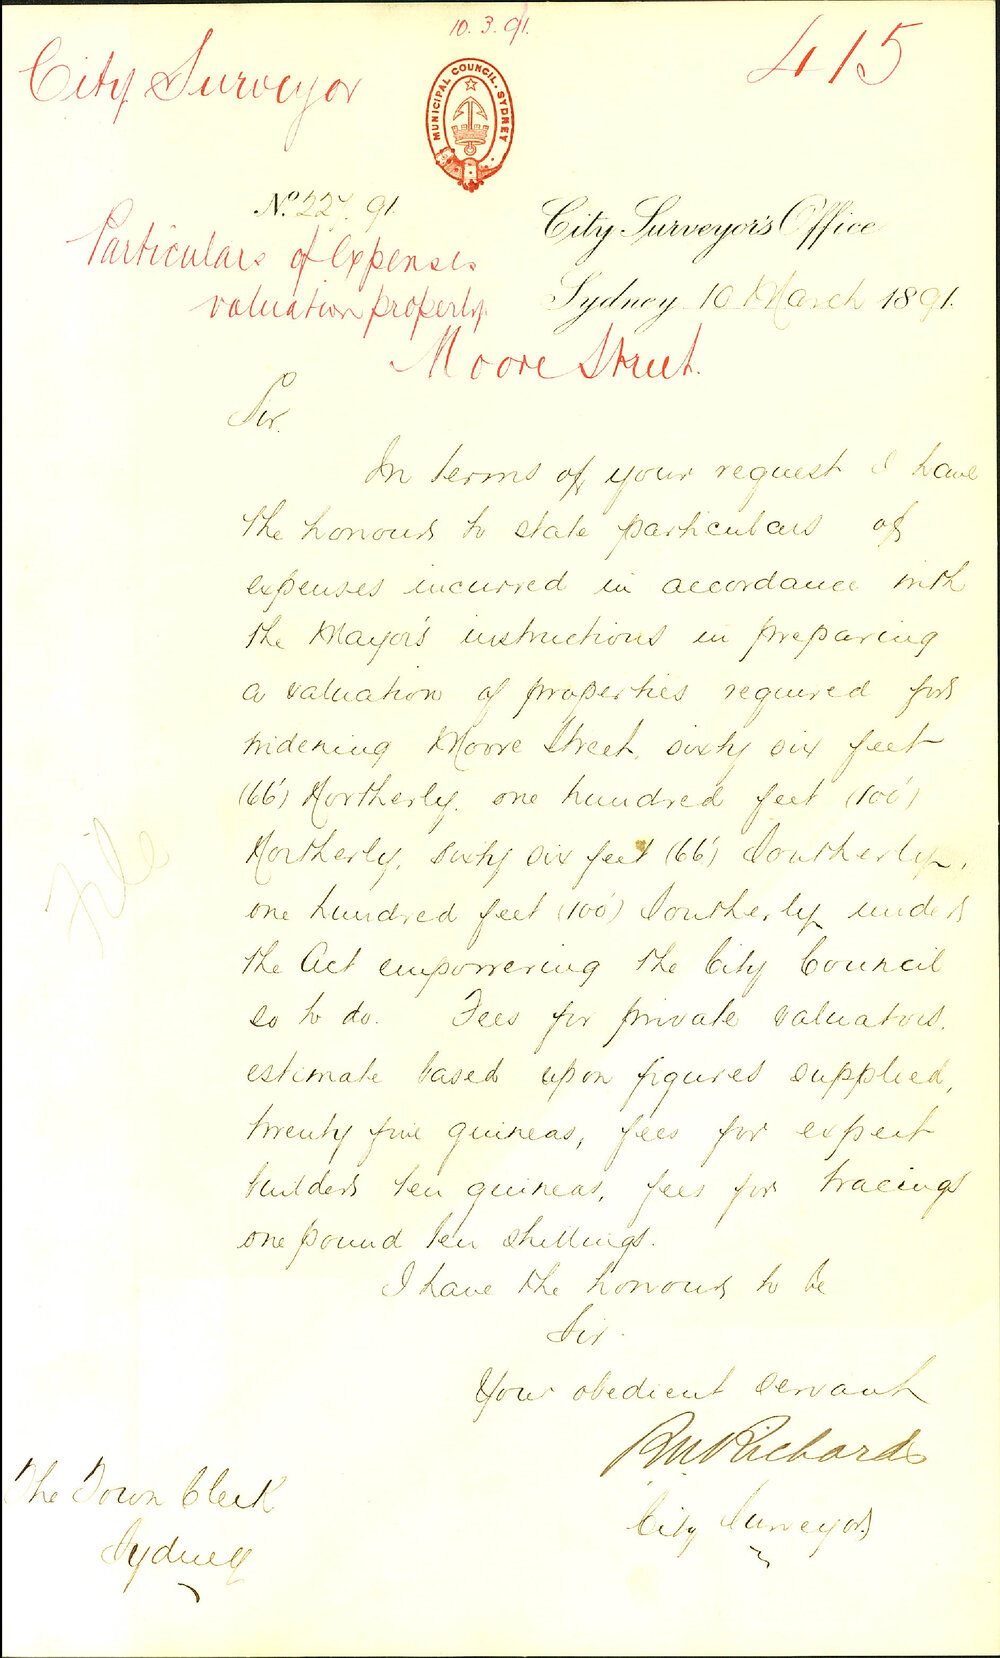 10.3.91.
City Surveyor
415
MUNICIPAL COUNCIL. SYDNEY
No. 227. 91.
City Surveyor's Office
Particulars of Expenses
valuation property
Sydney 10 March 1891.
Moore Street.
Sir.
In terms of your request I have
the honour to state particulars of
expenses incurred in accordance with
the Mayor's instructions in preparing
a valuation of properties required for
widening Moore Street, sixty six feet
(66') Northerly, one hundred feet (100')
Northerly, sixty six feet (66') Southerly,
one hundred feet (100') Southerly under
the Act empowering the City Council
so to do. Fees for private valuators,
estimate based upon figures supplied,
twenty five guineas, fees for expert
builders ten guineas, fees for tracings
one pound ten shillings.
I have the honour to be
Sir.
Your obedient servant
RM Richards
City Surveyor
The Town Clerk
Sydney
File